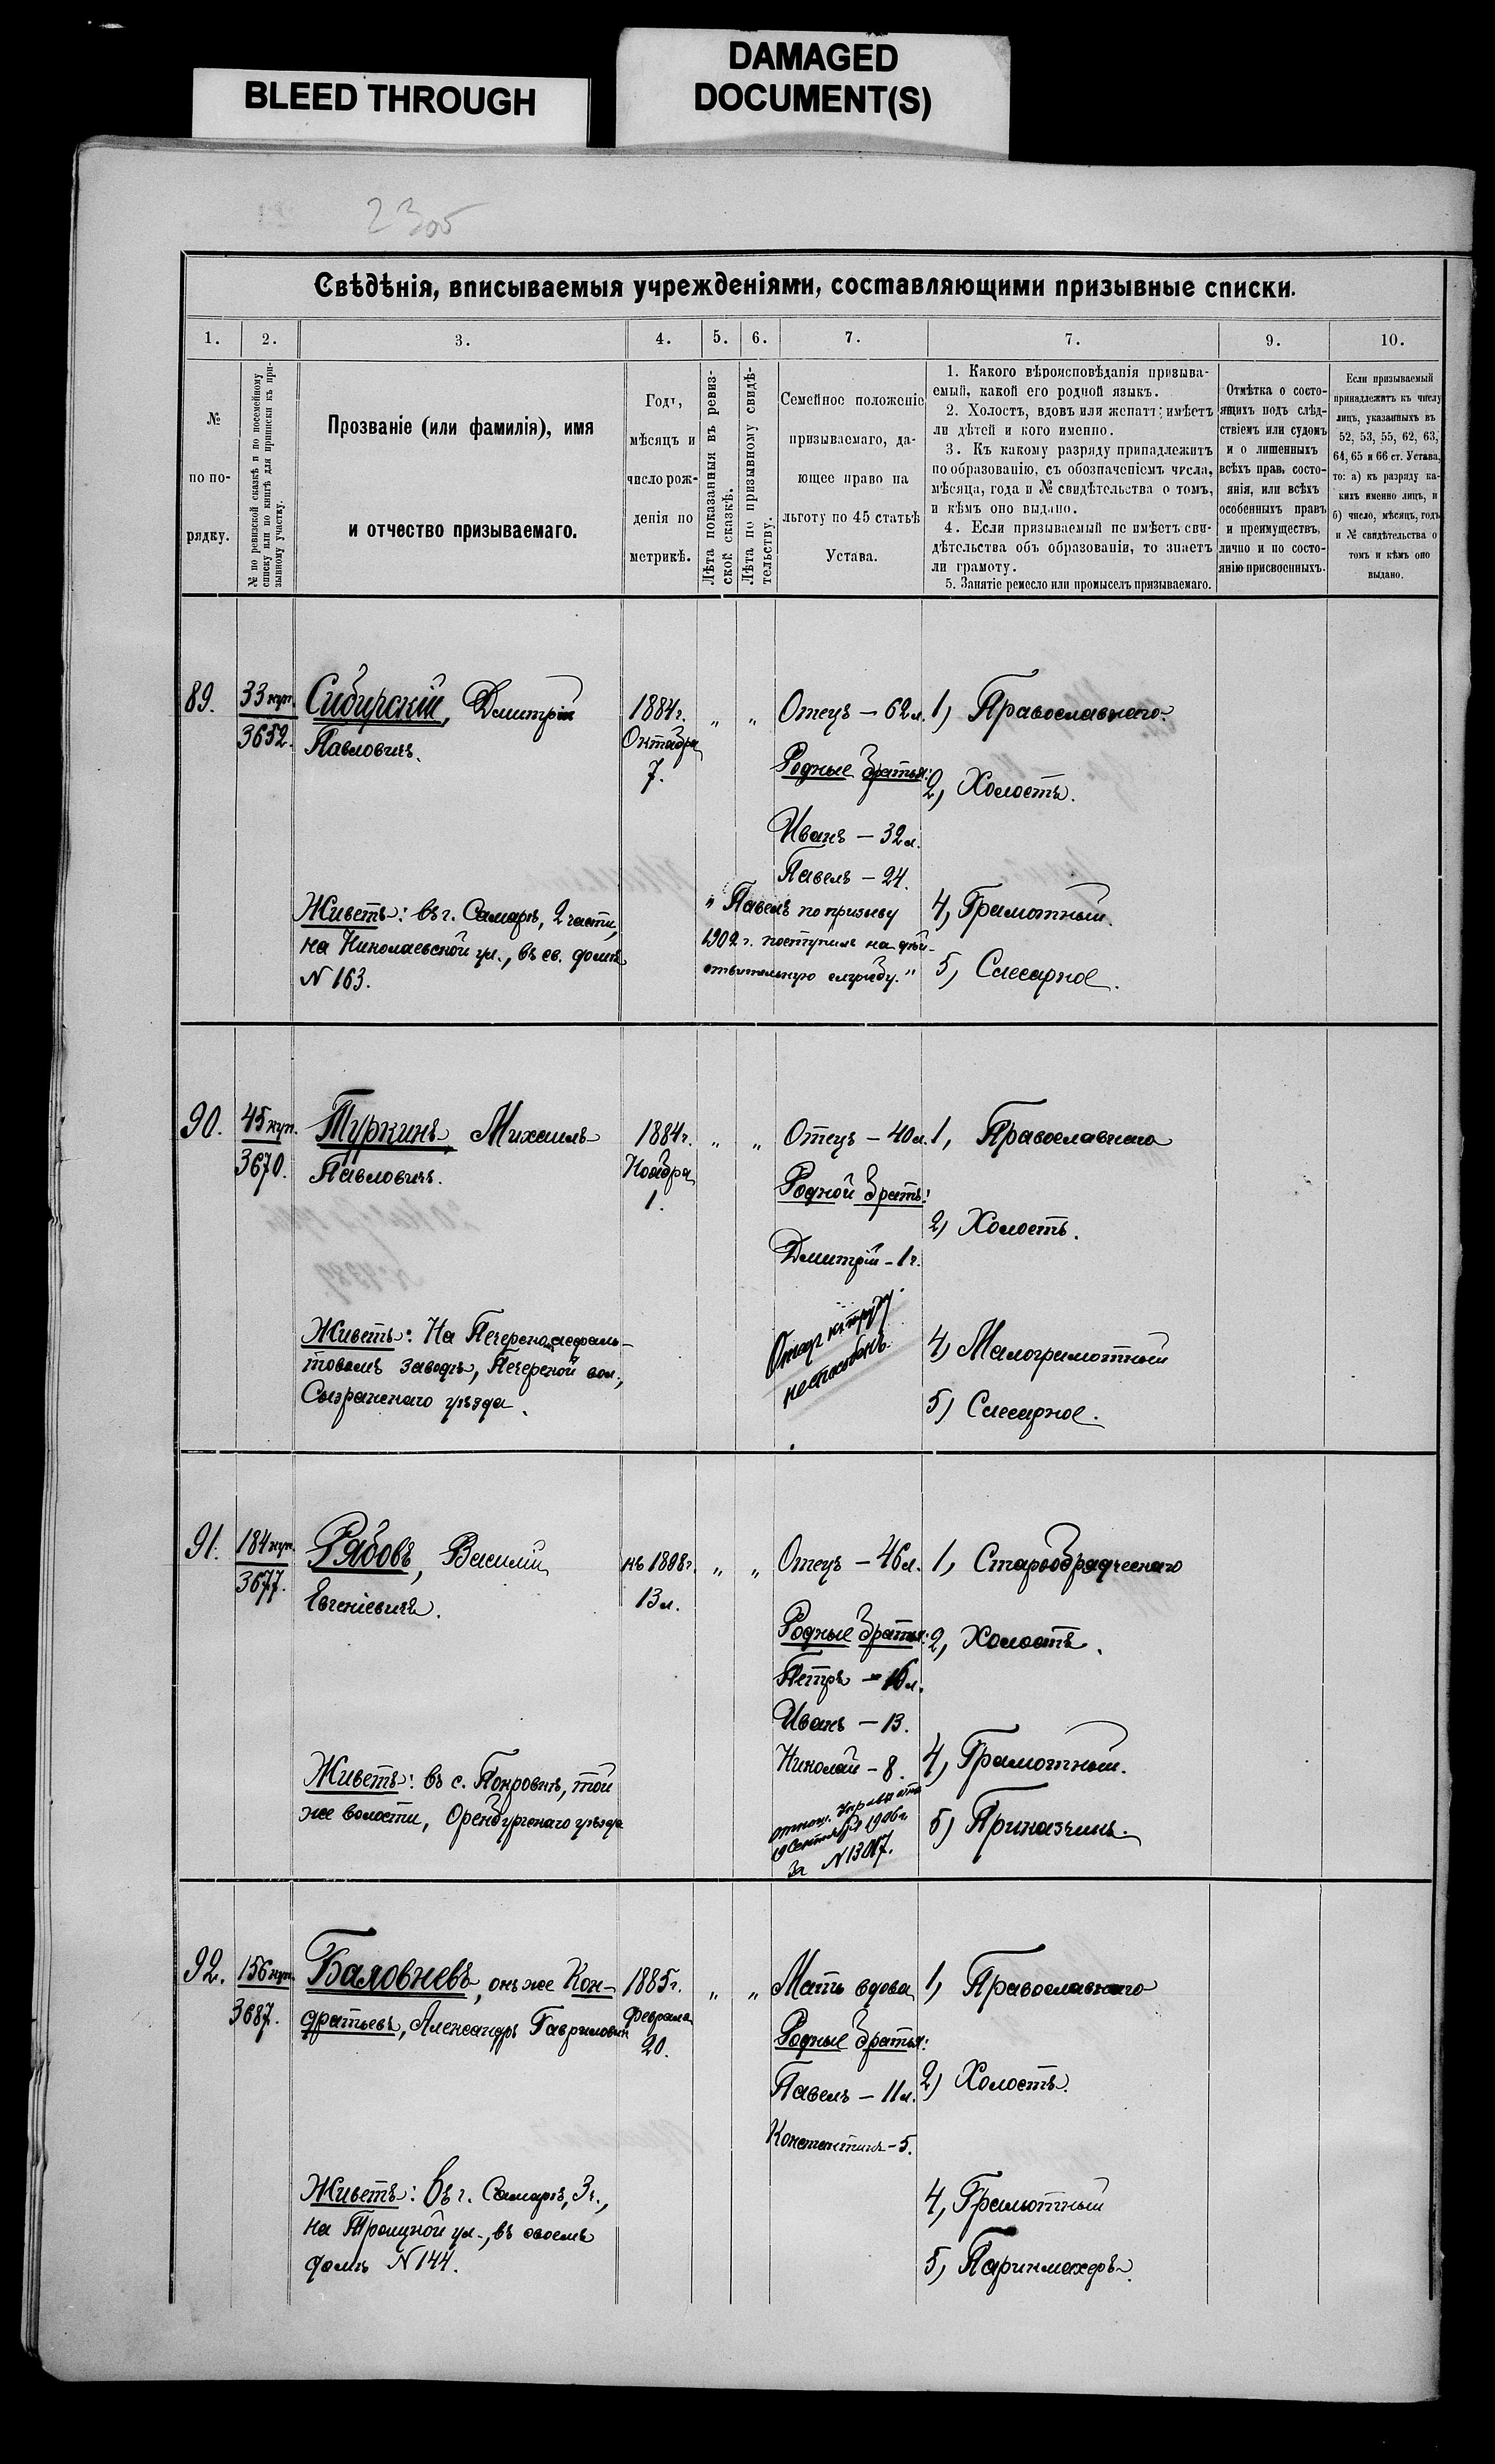 BLEED THROUGH
DAMAGED
DOCUMENT(S)
2305
Свѣдѣнія, вписываемыя учрежденіями, составляющими призывные списки.
1.
2.
3.
4.
5.
6.
7.
7.
9.
10.
№
по по-
рядку.
№ по ревизской сказкѣ и по посемейному
списку или по книгѣ для приписки къ при-
зывному участку.
Прозваніе (или фамилія), имя
и отчество призываемаго.
Годъ,
мѣсяцъ и
число рож-
денія по
метрикѣ.
Лѣта показанныя въ ревиз-
ской сказкѣ.
Лѣта по призывному свидѣ-
тельству.
Семейное положеніе
призываемаго, да-
ющее право на
льготу по 45 статьѣ
Устава.
1. Какого вѣроисповѣданія призыва-
емый, какой его родной языкъ.
2. Холостъ, вдовъ или женатъ; имѣетъ
ли дѣтей и кого именно.
3. Къ какому разряду принадлежитъ
по образованію, съ обозначеніемъ числа,
мѣсяца, года и № свидѣтельства о томъ,
и кѣмъ оно выдано.
4. Если призываемый не имѣетъ сви-
дѣтельства объ образованіи, то знаетъ
ли грамоту.
5. Занятіе ремесло или промыселъ призываемаго.
Отмѣтка о состо-
ящихъ подъ слѣд-
ствіемъ или судомъ
и о лишенныхъ
всѣхъ прав, состо-
янія, или всѣхъ
особенныхъ правъ
и преимуществъ,
лично и по состо-
янію присвоенныхъ.
Если призываемый
принадлежитъ къ числу
лицъ, указанныхъ въ
52, 53, 55, 62, 63,
64, 65 и 66 ст. Устава,
то: а) къ разряду ка-
кихъ именно лицъ, и
б) число, мѣсяцъ, годъ
и № свидѣтельства о
томъ и кѣмъ оно
выдано.
89.
33 куп.
3652.
Сибирскій, Дмитрій
Павловичъ.
Живетъ: въ г. Самарѣ, 2 части,
на Николаевской ул., въ св. домѣ
N 163.
1884 г.
Октября
7.
" "
Отецъ - 62 л.
Родные братья:
Иванъ - 32 л.
Павелъ - 24.
" Павелъ по призыву
1902 г. поступилъ на дѣй-
ствительную службу."
1) Православнаго.
2) Холостъ.
4) Грамотный.
5) Слесарное.
90.
45 куп.
3670.
Туркинъ, Михаилъ
Павловичъ.
Живетъ: На Печерскомъ асфаль-
товомъ заводѣ, Печерской вол.,
Сызранскаго уѣзда.
1884 г.
Ноября
1.
" "
Отецъ - 40 л.
Родной братъ:
Дмитрій - 1 г.
Отецъ къ труду
неспособенъ.
1, Православнаго
2) Холостъ.
4) Малограмотный
5) Слесарное.
91.
184 куп.
3677.
Рябовъ, Василій
Евгеніевичъ.
Живетъ: въ с. Покровкѣ, той
же волости, Оренбургскаго уѣзда
къ 1898 г.
13 л.
" "
Отецъ - 46 л.
Родные братья:
Петръ - 16 л.
Иванъ - 13.
Николай - 8.
19 Сентября 1906 г.
За N 13017.
1, Старообрядческаго
2, Холостъ.
4, Грамотный.
5) Приказчикъ.
92.
156 куп.
3687.
Баловневъ, онъ же Кон-
дратьевъ, Александръ Гавриловичъ
Живетъ: въ г. Самарѣ, 3 ч.,
на Троицкой ул., въ своемъ
домѣ N 144.
1885 г.
Февраля
20.
" "
Мать вдова
Родные братья:
Павелъ - 11 л.
Константинъ - 5.
1, Православнаго
2) Холостъ.
4, Грамотный
5, Парикмахеръ.